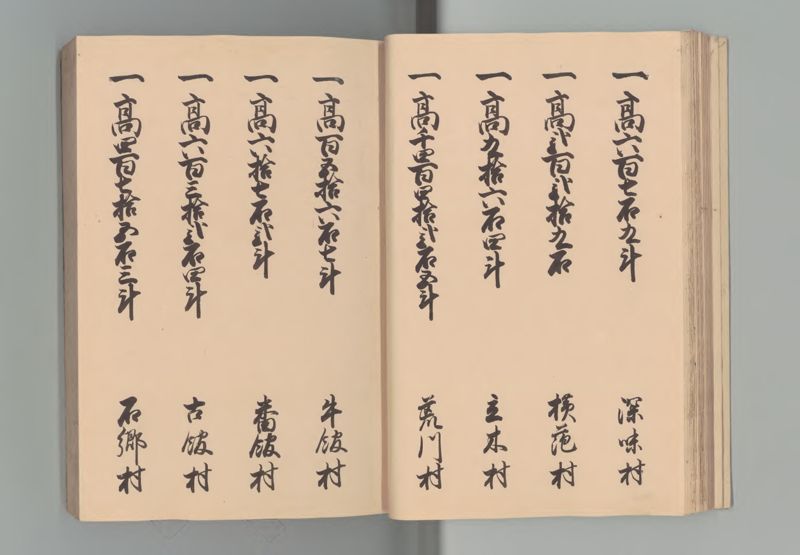 一高六百七石九斗 深味村
一高弐百弐拾九石 横範村
一高九拾六石四斗 立木村
一高千四百四拾弐石五斗 荒川村
一高百五拾六石七斗 牛館村
一高六拾七石弐斗 番館村
一高六百三拾弐石四斗 古館村
一高四百七拾五石三斗 石郷村